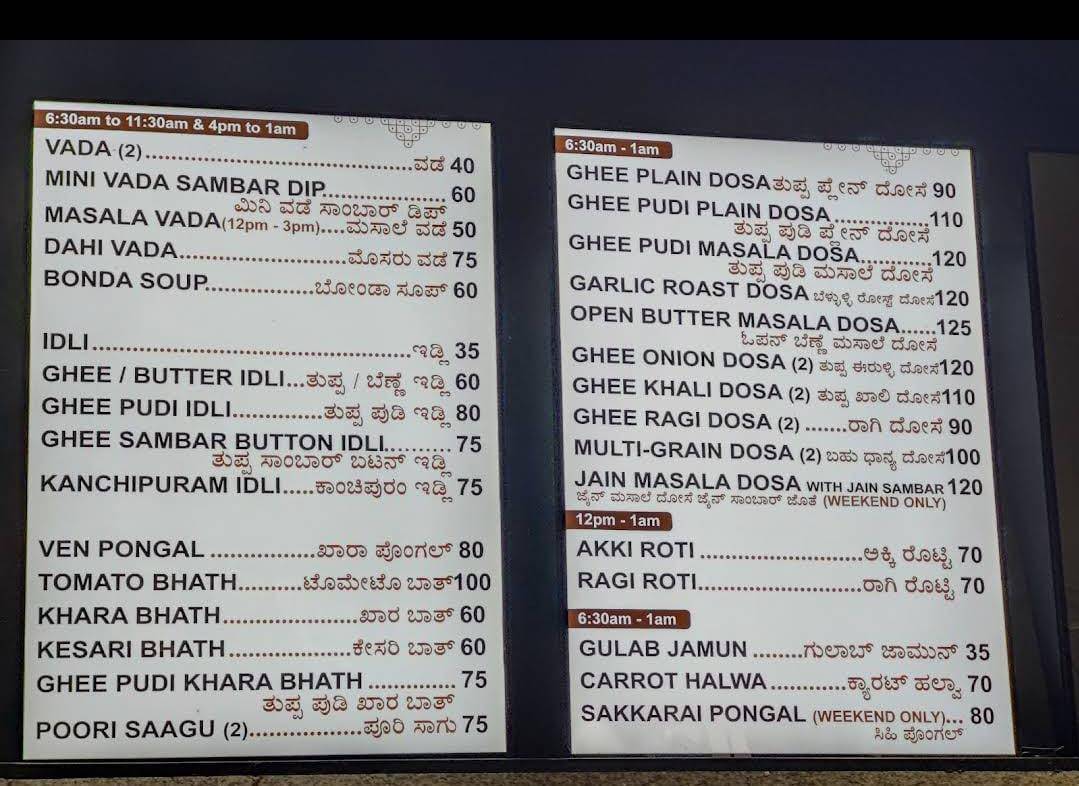 6:30am to 11:30am & 4pm to 1am
VADA (2)..........ವಡೆ 40
MINI VADA SAMBAR DIP.......... 60
ಮಿನಿ ವಡೆ ಸಾಂಬಾರ್ ಡಿಪ್
MASALA VADA(12pm - 3pm)....ಮಸಾಲೆ ವಡೆ 50
DAHI VADA..........ಮೊಸರು ವಡೆ 75
BONDA SOUP..........ಬೋಂಡಾ ಸೂಪ್ 60
IDLI..........ಇಡ್ಲಿ 35
GHEE / BUTTER IDLI...ತುಪ್ಪ / ಬೆಣ್ಣೆ ಇಡ್ಲಿ 60
GHEE PUDI IDLI..........ತುಪ್ಪ ಪುಡಿ ಇಡ್ಲಿ 80
GHEE SAMBAR BUTTON IDLI.......... 75
ತುಪ್ಪ ಸಾಂಬಾರ್ ಬಟನ್ ಇಡ್ಲಿ
KANCHIPURAM IDLI.....ಕಾಂಚಿಪುರಂ ಇಡ್ಲಿ 75
VEN PONGAL ..........ಖಾರಾ ಪೊಂಗಲ್ 80
TOMATO BHATH..........ಟೊಮೇಟೊ ಬಾತ್100
KHARA BHATH..........ಖಾರ ಬಾತ್ 60
KESARI BHATH..........ಕೇಸರಿ ಬಾತ್ 60
GHEE PUDI KHARA BHATH .......... 75
ತುಪ್ಪ ಪುಡಿ ಖಾರ ಬಾತ್
POORI SAAGU (2)..........ಪೂರಿ ಸಾಗು 75
6:30am - 1am
GHEE PLAIN DOSAತುಪ್ಪ ಪ್ಲೇನ್ ದೋಸೆ 90
GHEE PUDI PLAIN DOSA ..........110
ತುಪ್ಪ ಪುಡಿ ಪ್ಲೇನ್ ದೋಸೆ
GHEE PUDI MASALA DOSA..........120
ತುಪ್ಪ ಪುಡಿ ಮಸಾಲೆ ದೋಸೆ
GARLIC ROAST DOSA ಬೆಳ್ಳುಳ್ಳಿ ರೋಸ್ಟ್ ದೋಸೆ120
OPEN BUTTER MASALA DOSA......125
ಓಪನ್ ಬೆಣ್ಣೆ ಮಸಾಲೆ ದೋಸೆ
GHEE ONION DOSA (2) ತುಪ್ಪ ಈರುಳ್ಳಿ ದೋಸೆ120
GHEE KHALI DOSA (2) ತುಪ್ಪ ಖಾಲಿ ದೋಸೆ110
GHEE RAGI DOSA (2) .......ರಾಗಿ ದೋಸೆ 90
MULTI-GRAIN DOSA (2) ಬಹು ಧಾನ್ಯ ದೋಸೆ100
JAIN MASALA DOSA WITH JAIN SAMBAR 120
ಜೈನ್ ಮಸಾಲೆ ದೋಸೆ ಜೈನ್ ಸಾಂಬಾರ್ ಜೊತೆ (WEEKEND ONLY)
12pm - 1am
AKKI ROTI ..........ಅಕ್ಕಿ ರೊಟ್ಟಿ 70
RAGI ROTI..........ರಾಗಿ ರೊಟ್ಟಿ 70
6:30am - 1am
GULAB JAMUN ........ಗುಲಾಬ್ ಜಾಮುನ್ 35
CARROT HALWA..........ಕ್ಯಾರಟ್ ಹಲ್ವಾ 70
SAKKARAI PONGAL (WEEKEND ONLY)... 80
ಸಿಹಿ ಪೊಂಗಲ್